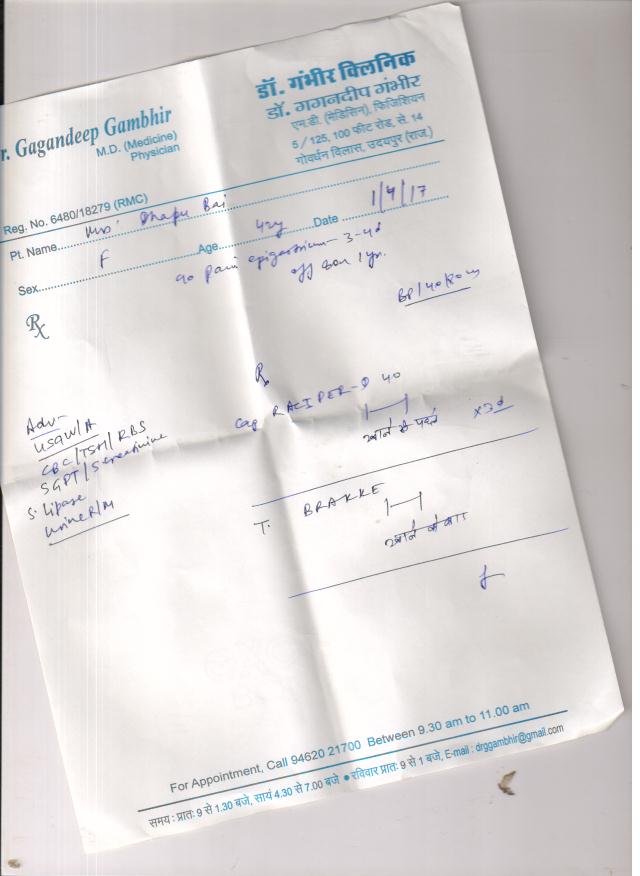 डॉ. गंभीर क्लिनिक
डॉ. गगनदीप गंभीर
एम.डी. (मेडिसिन), फिजिशियन
5/125, 100 फीट रोड, से. 14
गोवर्धन विलास, उदयपुर (राज.)
r. Gagandeep Gambhir
M.D. (Medicine)
Physician
Reg. No. 6480/18279 (RMC)
Pt. Name Mrs. Dhapu Bai
Sex F Age 42y Date 1/4/17
pain epigastrium - 3-4d
off & on 1 yr.
Rx
Adv-
USG W/A
CBC/TSH/RBS
SGPT/S creatinine
S. Lipase
Urine R/M
Rx
Cap RACIPER-D 40
खाने से पहले
T. BRAKKE
खाने के बाद
For Appointment, Call 94620 21700 Between 9.30 am to 11.00 am
समय : प्रातः 9 से 1.30 बजे, सायं 4.30 से 7.00 बजे ● रविवार प्रातः 9 से 1 बजे, E-mail : drggambhir@gmail.com